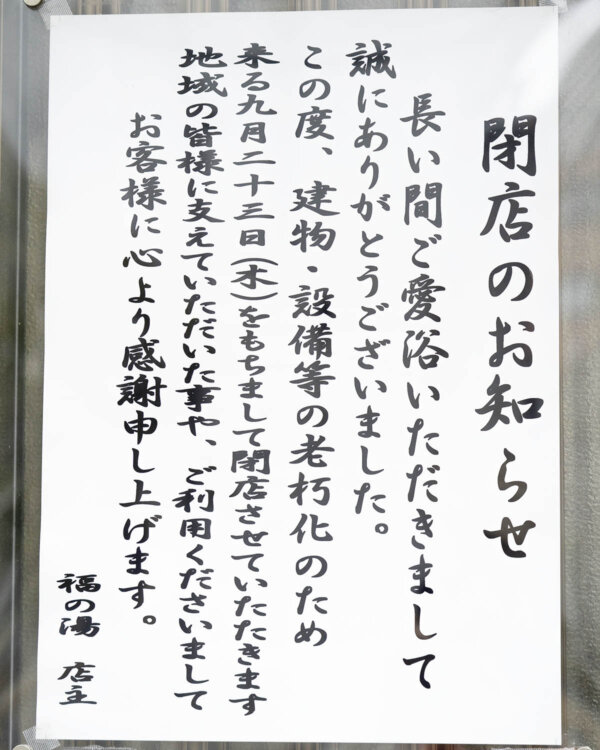 閉店のお知らせ
長い間ご愛浴いただきまして
誠にありがとうございました。
この度、建物・設備等の老朽化のため
来る九月二十三日(木)をもちまして閉店させていたたきます
地域の皆様に支えていただいた事や、ご利用くださいまして
お客様に心より感謝申し上げます。
福の湯 店主